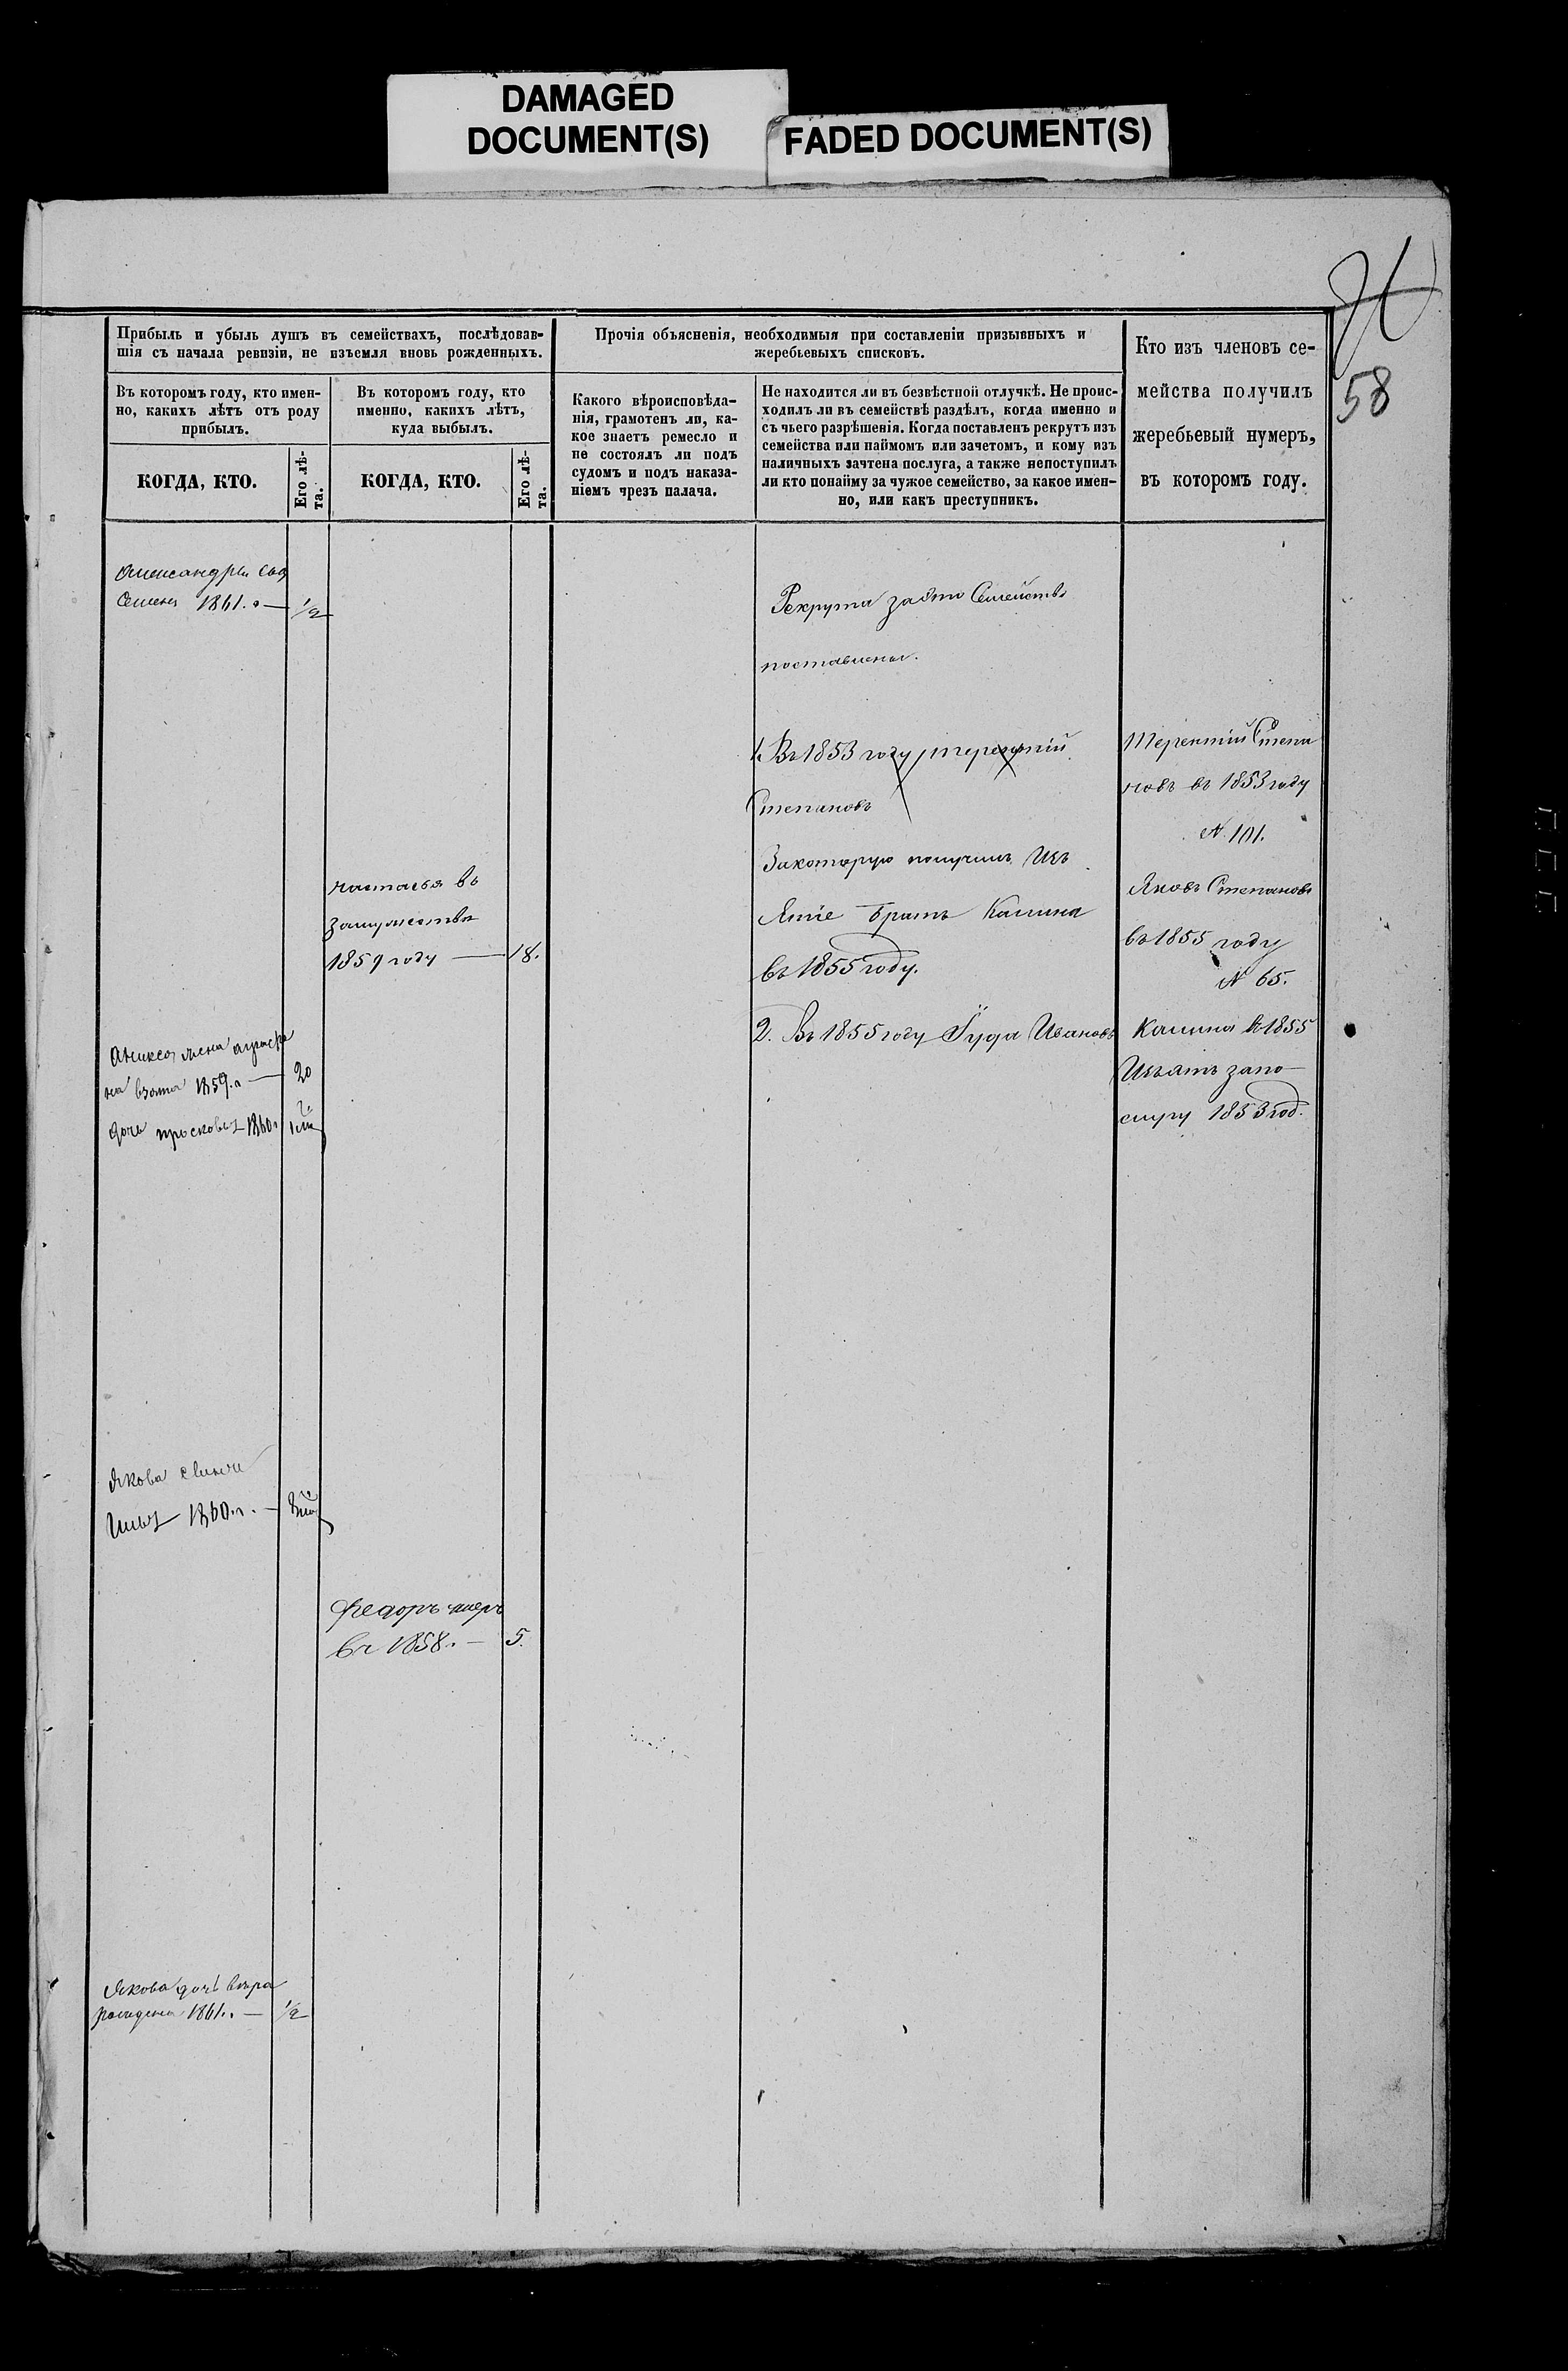 DAMAGED
DOCUMENT(S)
FADED DOCUMENT(S)
58
Прибыль и убыль душъ въ семействахъ, послѣдовав-
шія съ начала ревизіи, не изъемля вновь рожденныхъ.
Въ которомъ году, кто имен-
но, какихъ лѣтъ отъ роду
прибылъ.
КОГДА, КТО.
Его лѣ-
та.
Въ которомъ году, кто
именно, какихъ лѣтъ,
куда выбылъ.
КОГДА, КТО.
Его лѣ-
та.
Прочія объясненія, необходимыя при составленіи призывныхъ и
жеребьевыхъ списковъ.
Какого вѣроисповѣда-
нія, грамотенъ ли, ка-
кое знаетъ ремесло и
не состоялъ ли подъ
судомъ и подъ наказа-
ніемъ чрезъ палача.
Не находится ли въ безвѣстной отлучкѣ. Не проис-
ходилъ ли въ семействѣ раздѣлъ, когда именно и
съ чьего разрѣшенія. Когда поставленъ рекрутъ изъ
семейства или наймомъ или зачетомъ, и кому изъ
наличныхъ зачтена послуга, а также непоступилъ
ли кто понайму за чужое семейство, за какое имен-
но, или какъ преступникъ.
Кто изъ членовъ се-
мейства получилъ
жеребьевый нумеръ,
въ которомъ году.
Александры
Семенъ 1861. г — 1/2
настасья въ
замужества
1859 году — 18.
жена
взята 1859. г — 20
дочь просковья 1860 г
Якова
Илья 1860. г. —
Федоръ умеръ
въ 1858. — 5.
Якова дочь вѣра
рождена 1861. г — 1/2
Рекрута Семейства
поставлены.
1. Въ 1853 году терентій
Степановъ
Закоторую получилъ Изъ
Ятіе братъ Калина
въ 1855 году.
2. Въ 1855 году Іуда Ивановъ
Терентій Степа
новъ въ 1853 году
N. 101.
Яковъ Степановъ
въ 1855 году
N 65.
Калина въ 1855
Изъятъ запо
слугу 1853 год.